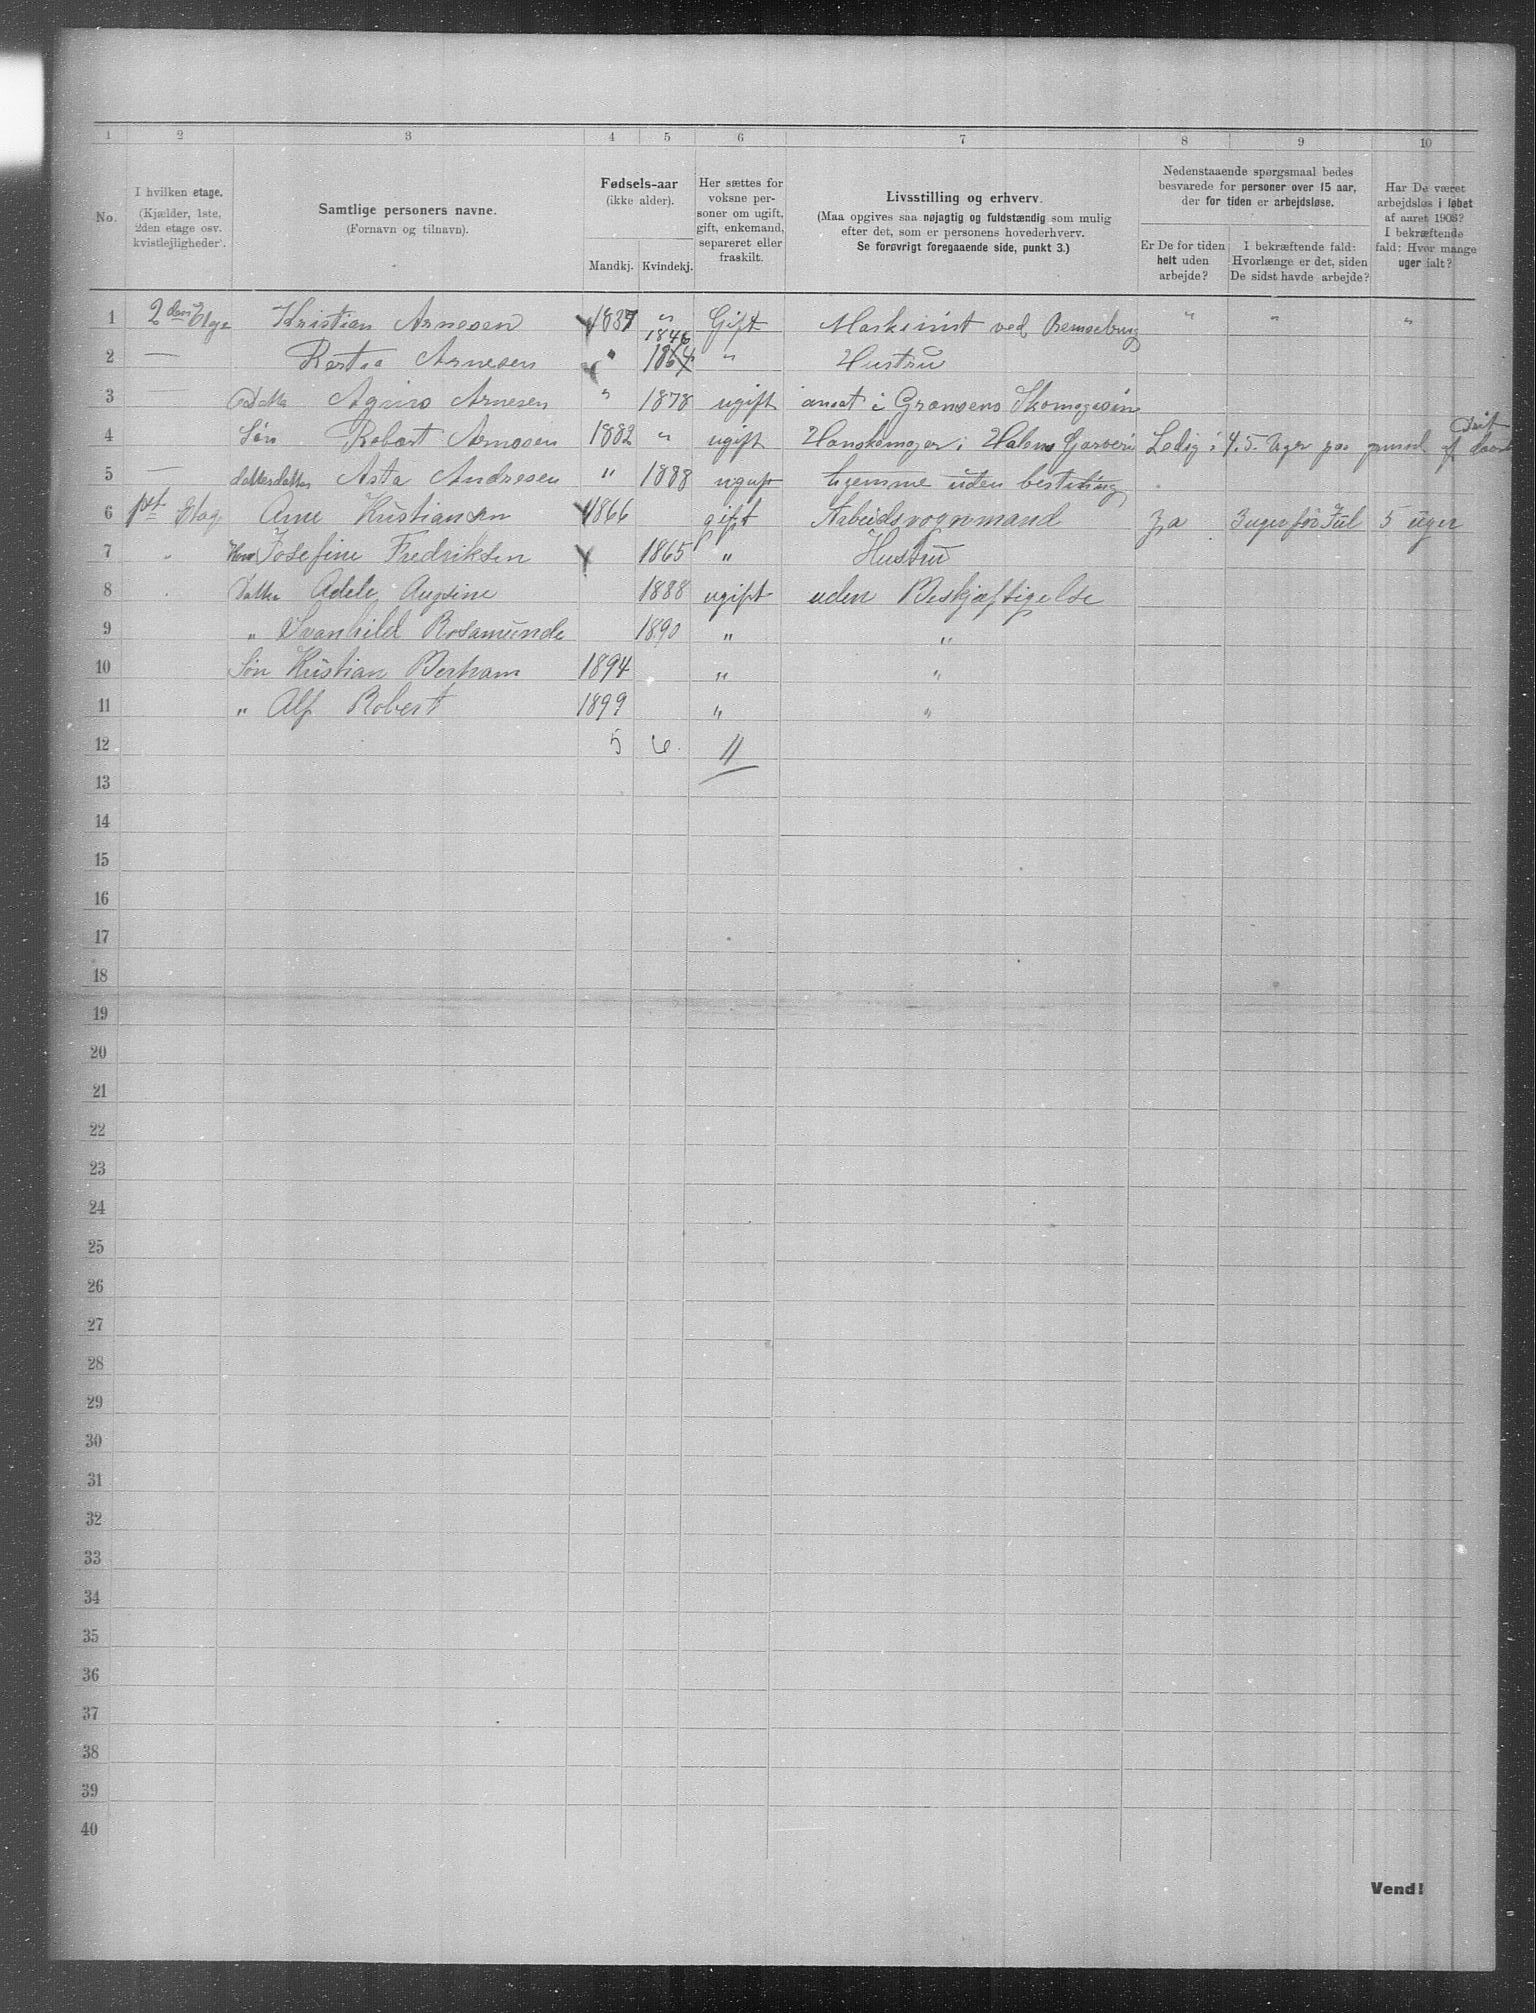 1 2 3 4 5 6 7 8 9 10
No.
I hvilken etage.
(Kjælder, 1ste,
2den etage osv.
kvistlejligheder).
Samtlige personers navne.
(Fornavn og tilnavn).
Fødsels-aar
(ikke alder).
Mandkj. Kvindekj.
Her sættes for
voksne per-
soner om ugift,
gift, enkemand,
separeret eller
fraskilt.
Livsstilling og erhverv.
(Maa opgives saa nøjagtig og fuldstændig som mulig
efter det, som er personens hovederhverv.
Se forøvrigt foregaaende side, punkt 3.)
Nedenstaaende spørgsmaal bedes
besvarede for personer over 15 aar,
der for tiden er arbejdsløse.
Er De for tiden
helt uden
arbejde?
I bekræftende fald:
Hvorlænge er det, siden
De sidst havde arbejde?
Har De været
arbejdsløs i løbet
af aaret 1903?
I bekræftende
fald: Hvor mange
uger ialt?
1 2den Etage Kristian Arnesen 1837 " Gift Maskinist ved " " "
2 — Arnesen " 1846 1864 " Hustru
3 Datter Arnesen " 1878 ugift ansat i Grænsens Skomagasin
4 Søn Robert Arnesen 1882 " ugift i Garveri Ledig i 4.5. Uger paa grund af
5 — datterdatter Asta Andresen " 1888 ugift hjemme uden bestilling
6 1st Etag Arne Kristiansen 1866 gift Arbeidsvognmand Ja 3 uger før Jul 5 uger
7 " Josefine Fredriksen 1865 " Hustru
8 " Datter Adele Augsine 1888 ugift uden Beskjæftigelse
9 " Svanhild Rosamunde 1890 " "
10 Søn Kristian Bertram 1894 " "
11 " Alf Robert 1899 " "
12 5 6. 11
13
14
15
16
17
18
19
20
21
22
23
24
25
26
27
28
29
30
31
32
33
34
35
36
37
38
39
40
Vend!